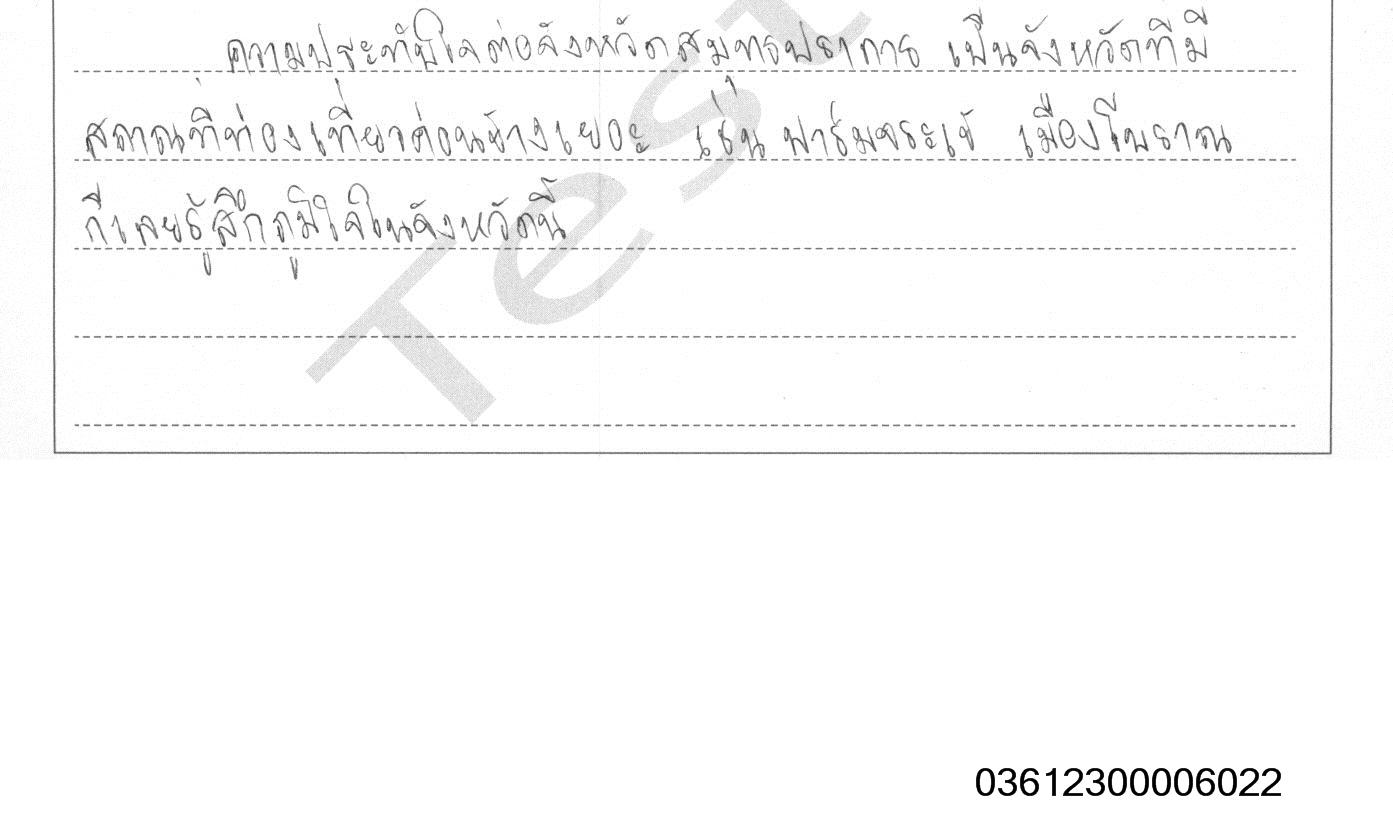 ความประทับใจต่อจังหวัดสมุทรปราการ เป็นจังหวัดที่มี
สถานที่ท่องเที่ยวค่อนข้างเยอะ เช่น ฟาร์มจระเข้ เมืองโบราณ
ก็เลยรู้สึกภูมิใจในจังหวัดนี้
Test
03612300006022